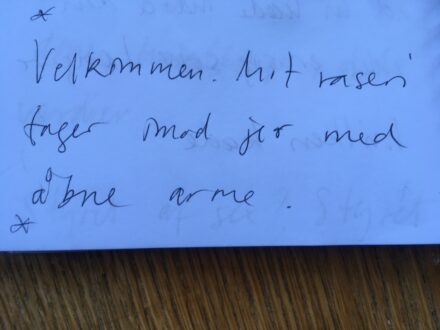 *
Velkommen. Mit raseri
tager imod jer med
åbne arme.
*